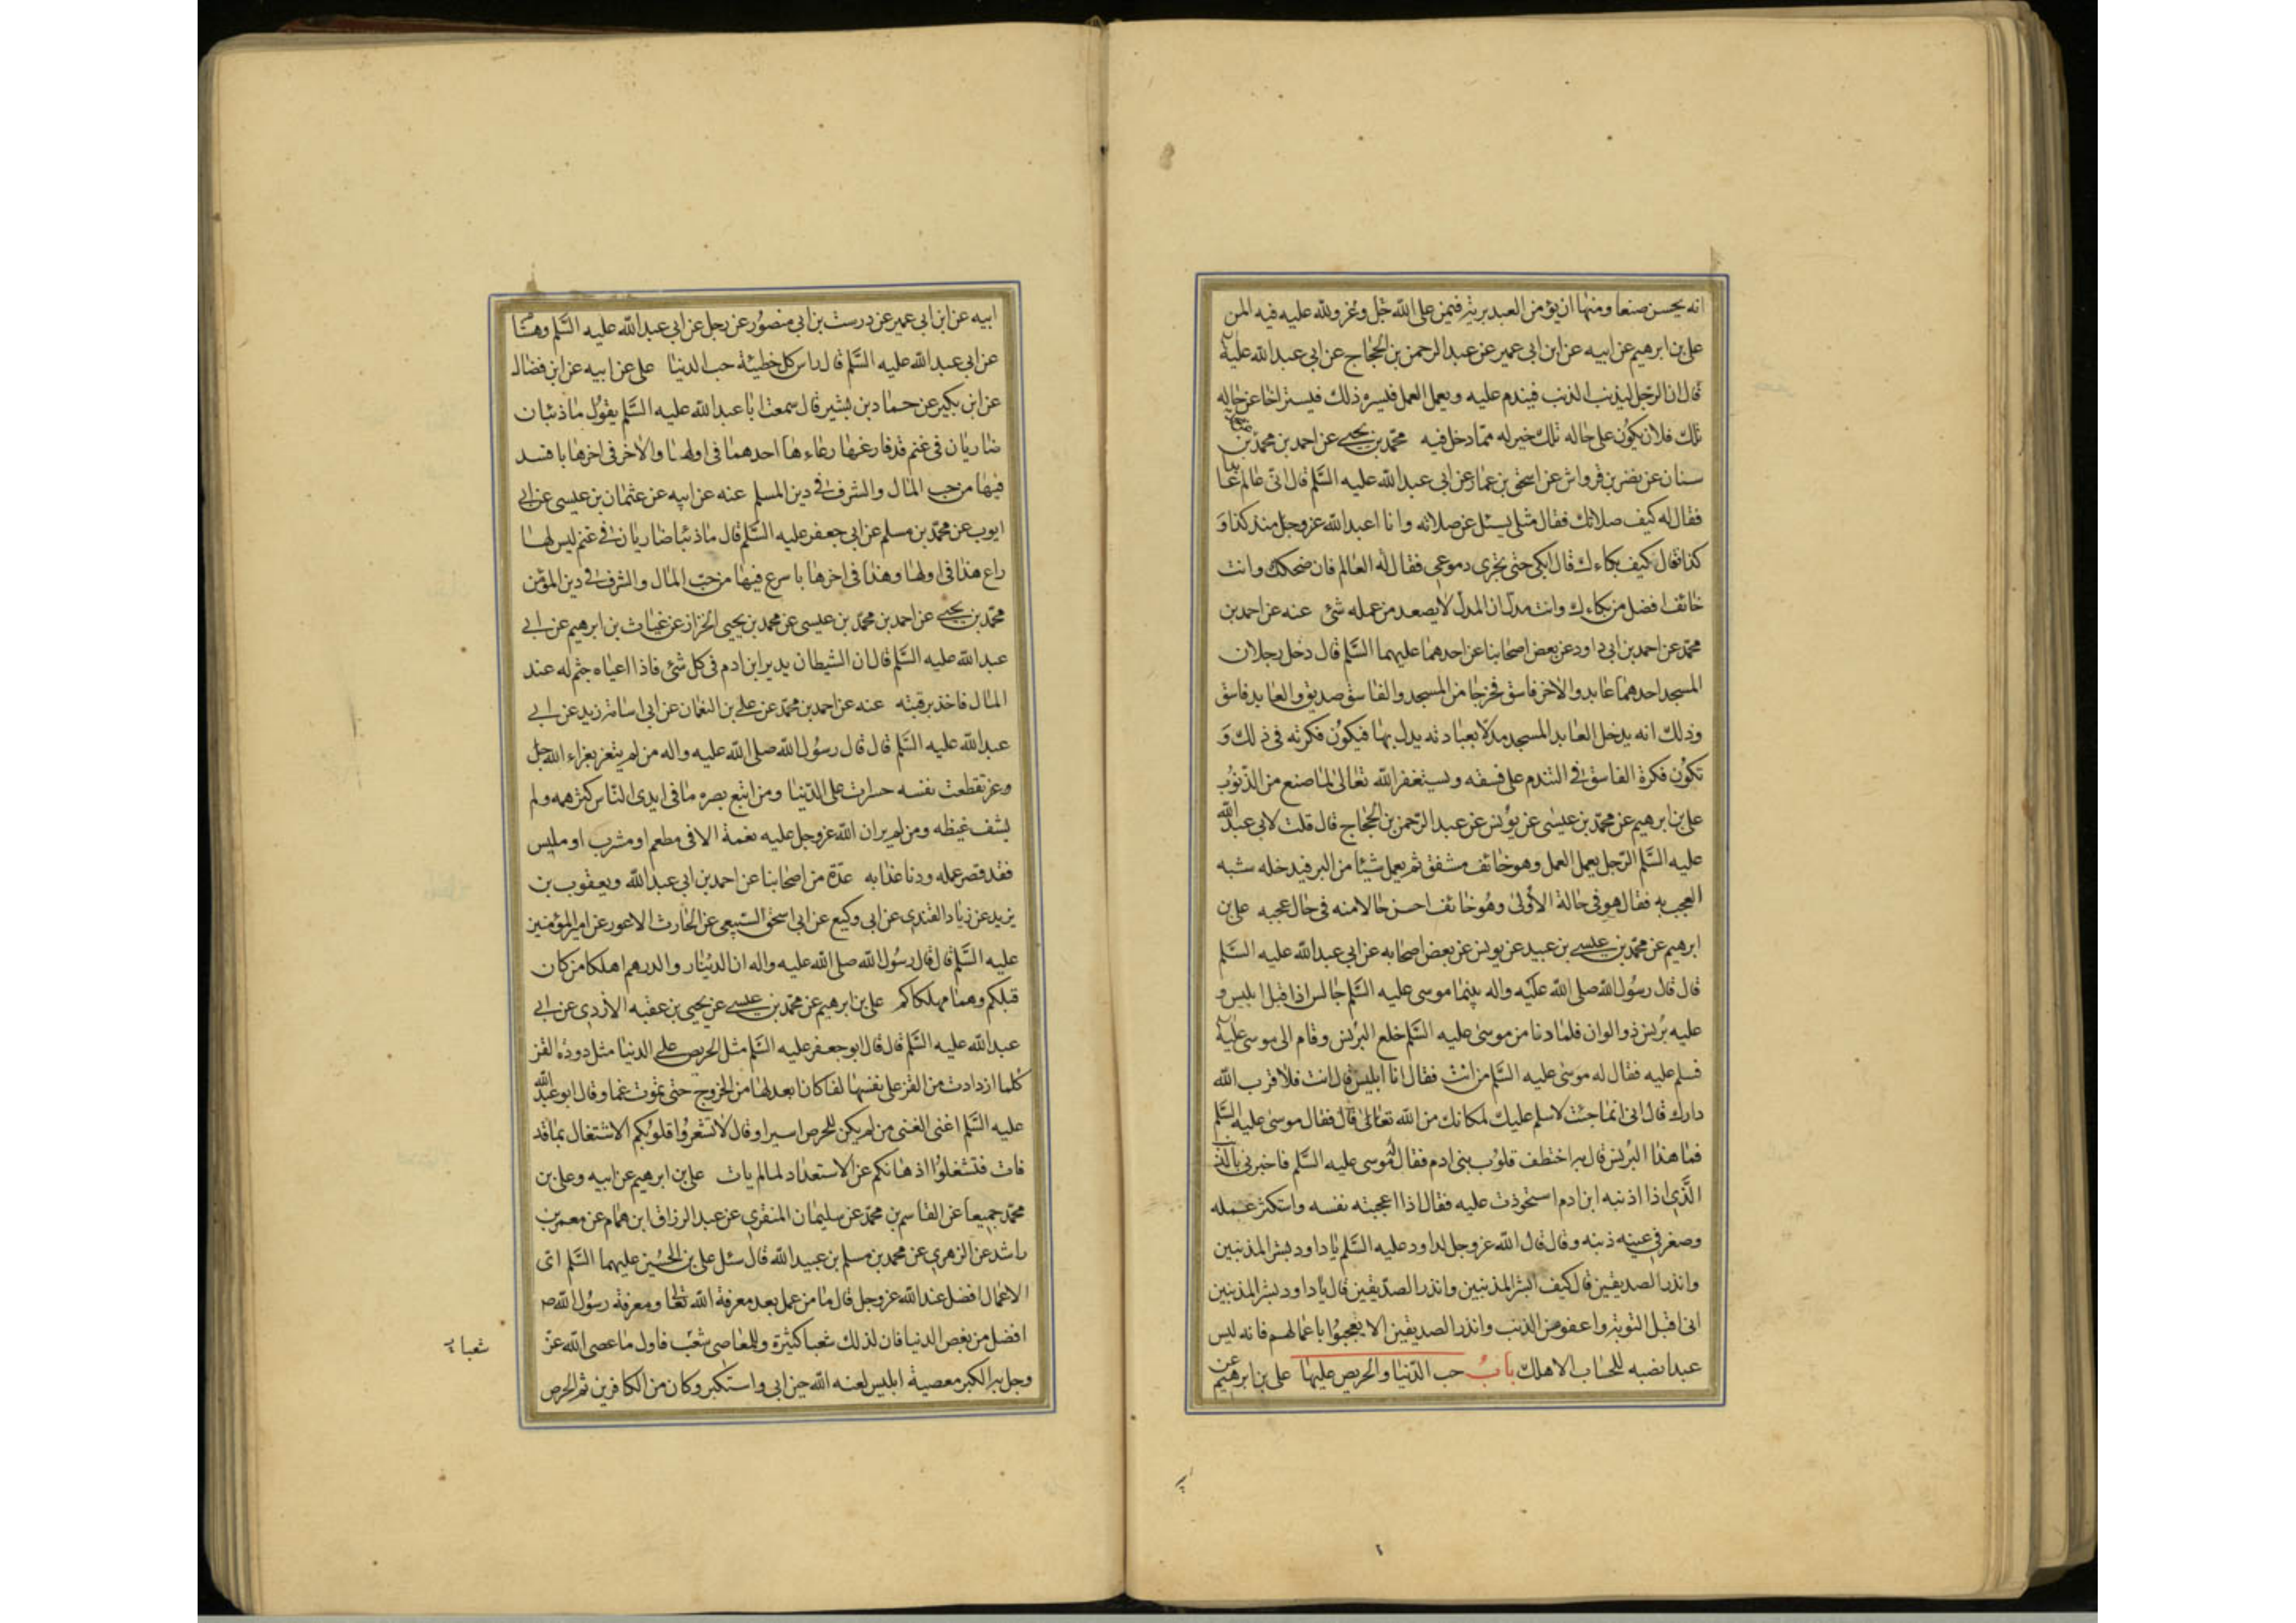 انه يحسن صنعا ومنها ان يؤمن العبد بربه فيمن على الله جل وعز ولله عليه فيه المن
على بن ابرهيم عن ابيه عن ابن ابى عمير عن عبد الرحمن بن الحجاج عن ابى عبد الله عليه
قال ان الرجل ليذنب الذنب فيندم عليه ويعمل العمل فيسره ذلك فيتراخا عن حاله
تلك فلان يكون على حاله تلك خير له مما دخل فيه محمد بن يحيى عن احمد بن محمد بن
سنان عن نضر بن قرواش عن اسحق بن عمار عن ابى عبد الله عليه السلم قال اتى عالم عابدا
فقال له كيف صلاتك فقال مثلى يسئل عن صلاته وانا اعبد الله عز وجل منذ كذا و
كذا قال كيف بكاءك قال ابكى حتى تجرى دموعى فقال له العالم فان ضحكك وانت
خائف افضل من بكاءك وانت مدل ان المدل لا يصعد من عمله شئ عنه عن احمد بن
محمد عن احمد بن ابى داود عن بعض اصحابنا عن احدهما عليهما السلم قال دخل رجلان
المسجد احدهما عابد والاخر فاسق فخرجا من المسجد والفاسق صديق والعابد فاسق
وذلك انه يدخل العابد المسجد مدلا بعبادته يدل بها فيكون فكرته فى ذلك و
تكون فكرة الفاسق فى التندم على فسقه ويستغفر الله تعالى لما صنع من الذنوب
على بن ابرهيم عن محمد بن عيسى عن يونس عن عبد الرحمن بن الحجاج قال قلت لابى عبد الله
عليه السلم الرجل يعمل العمل وهو خائف مشفق ثم يعمل شيئا من البر فيدخله شبه
العجب به فقال هو فى حالة الأولى وهو خائف احسن حالا منه فى حال عجبه على بن
ابرهيم عن محمد بن عيسى بن عبيد عن يونس عن بعض اصحابه عن ابى عبد الله عليه السلم
قال قال رسول الله صلى الله عليه واله بينما موسى عليه السلم جالس اذا قبل ابليس و
عليه برنس ذو الوان فلما دنا من موسى عليه السلم خلع البرنس وقام الى موسى عليه
فسلم عليه فقال له موسى عليه السلم من انت فقال انا ابليس قال انت فلا قرب الله
دارك قال انى انما جئت لاسلم عليك لمكانك من الله تعالى قال فقال موسى عليه السلم
فما هذا البرنس قال به اختطف قلوب بنى ادم فقال موسى عليه السلم فاخبرنى بالذنب
الذى اذا اذنبه ابن ادم استحوذت عليه فقال اذا اعجبته نفسه واستكثر عمله
وصغر فى عينه ذنبه وقال قال الله عز وجل لداود عليه السلم يا داود بشر المذنبين
وانذر الصديقين قال كيف ابشر المذنبين وانذر الصديقين قال يا داود بشر المذنبين
انى اقبل التوبة واعفو عن الذنب وانذر الصديقين الا يعجبوا باعمالهم فانه ليس
عبد انصبه للحساب الا هلك باب حب الدنيا والحريص عليها على بن ابرهيم عن
ابيه عن ابن ابى عمير عن درست بن ابى منصور عن رجل عن ابى عبد الله عليه السلم وهشام
عن ابى عبد الله عليه السلم قال راس كل خطيئة حب الدنيا على عن ابيه عن ابن فضال
عن ابن بكير عن حماد بن بشير قال سمعت ابا عبد الله عليه السلم يقول ما ذئبان
ضاريان فى غنم قد فارغها رعاءها احدهما فى اولها والاخر فى اخرها بافسد
فيها من حب المال والشرف فى دين المسلم عنه عن ابيه عن عثمان بن عيسى عن ابى
ايوب عن محمد بن مسلم عن ابى جعفر عليه السلم قال ما ذئبا ضاريان فى غنم ليس لها
راع هذا فى اولها وهذا فى اخرها باسرع فيها من حب المال والشرف فى دين المؤمن
محمد بن يحيى عن احمد بن محمد بن عيسى عن محمد بن يحيى الخزاز عن غياث بن ابرهيم عن ابى
عبد الله عليه السلم قال ان الشيطان يدير ابن ادم فى كل شئ فاذا اعياه جثم له عند
المال فاخذ برقبته عنه عن احمد بن محمد عن على بن النعمان عن ابى اسامة زيد عن ابى
عبد الله عليه السلم قال قال رسول الله صلى الله عليه واله من لم يتعز بعزاء الله جل
وعز تقطعت نفسه حسرات على الدنيا ومن اتبع بصره ما فى ايدى الناس كثر همه ولم
يشف غيظه ومن لم ير ان الله عز وجل عليه نعمة الا فى مطعم او مشرب او ملبس
فقد قصر عمله ودنا عذابه عدة من اصحابنا عن احمد بن ابى عبد الله ويعقوب بن
يزيد عن زياد القندى عن ابى وكيع عن ابى اسحق السبيعى عن الحارث الاعور عن امير المؤمنين
عليه السلم قال قال رسول الله صلى الله عليه واله ان الدينار والدرهم اهلكا من كان
قبلكم وهما مهلكاكم على بن ابرهيم عن محمد بن عيسى عن يحيى بن عقبه الازدى عن ابى
عبد الله عليه السلم قال قال ابو جعفر عليه السلم مثل الحريص على الدنيا مثل دودة القز
كلما ازدادت من القز على نفسها لفا كان ابعد لها من الخروج حتى تموت غما وقال ابو عبد الله
عليه السلم اغنى الغنى من لم يكن للحرص اسيرا وقال لا تشعروا قلوبكم الاشتغال بما قد
فات فتشغلوا اذهانكم عن الاستعداد لما لم يات على بن ابرهيم عن ابيه وعلى بن
محمد جميعا عن القاسم بن محمد عن سليمان المنقرى عن عبد الرزاق ابن همام عن معمر بن
راشد عن الزهرى عن محمد بن مسلم بن عبيد الله قال سئل على بن الحسين عليهما السلم اى
الاعمال افضل عند الله عز وجل قال ما من عمل بعد معرفة الله تعا ومعرفة رسول الله ص
افضل من بغض الدنيا فان لذلك شعبا كثيرة وللمعاصى شعب فاول ما عصى الله عز
وجل به الكبر معصية ابليس لعنه الله حين ابى واستكبر وكان من الكافرين ثم الحرص
شعبا